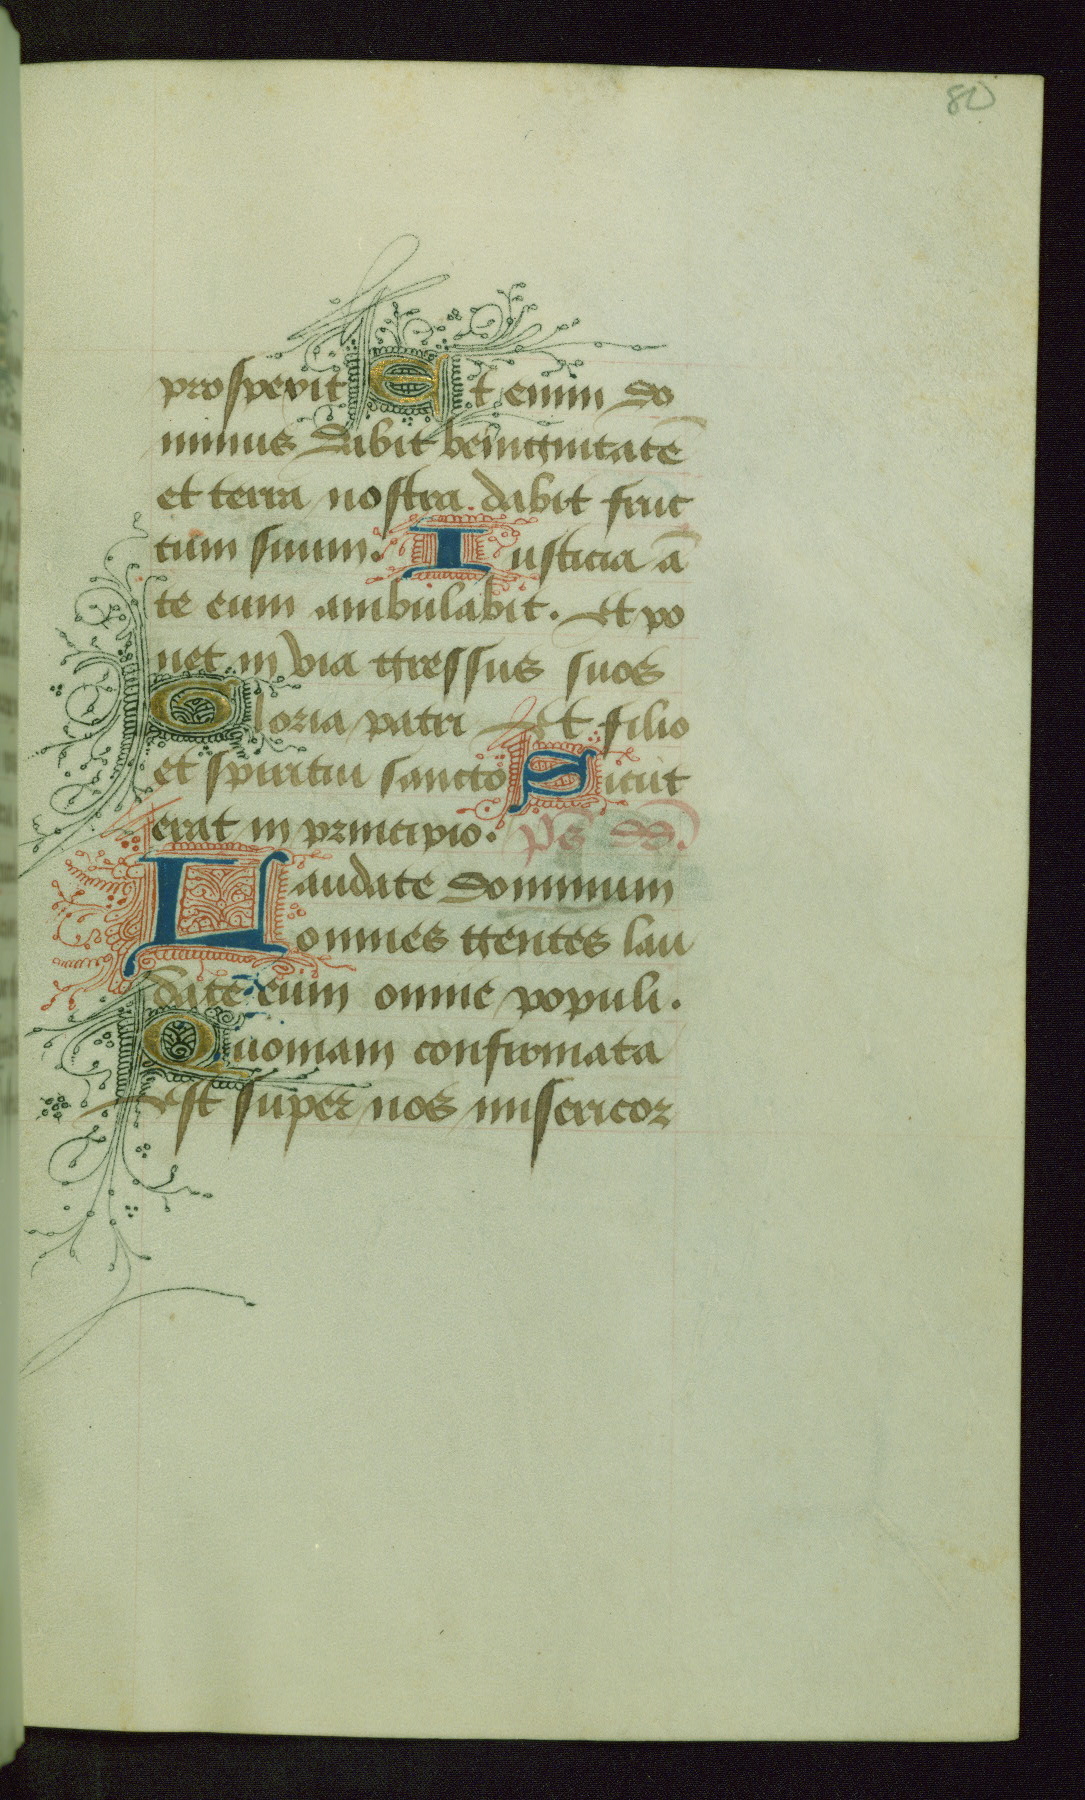 80
prospexit Et enim do
minus dabit benignitatē
et terra nostra dabit fruc
tum suum. Iusticia ā
te eum ambulabit. Et po
net in via gressus suos
Gloria patri Et filio
et spiritui sancto Sicut
erat in principio. ps̄ dd.
Laudate dominum
omnes gentes lau
date eum omnes populi.
Quoniam confirmata
est super nos misericor